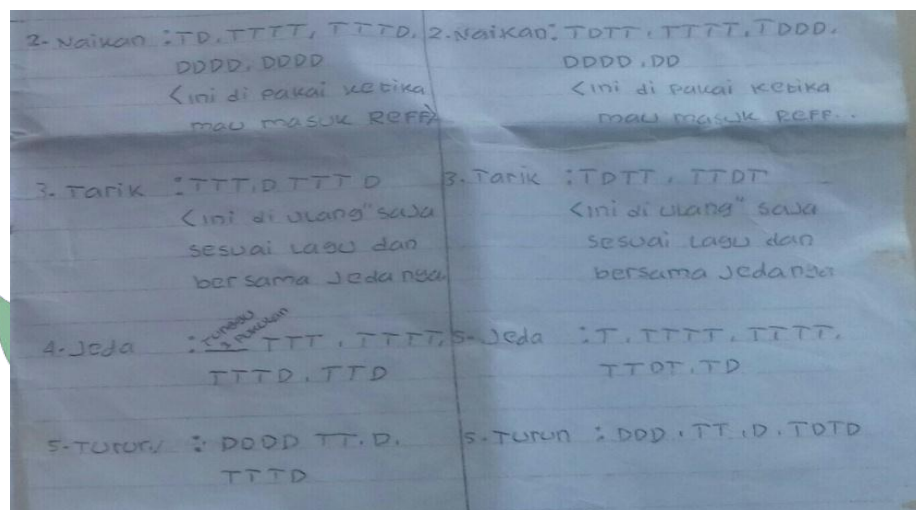 2. Naikan : TD.TTTT, TTTD.
DDDD. DDDD
<ini di pakai ketika
mau masuk REFF>
3. Tarik : TTT.D TTT D
<ini di ulang" saja
sesuai lagu dan
bersama Jedanya.
4. Jeda : Tunggu 3 Pukulan TTT . TTTT.
TTTD . TTD
5. Turun : DDDD TT.D.
TTTD
2. Naikan : TDTT . TTTT. TDDD.
DDDD . DD
<ini di pakai ketika
mau masuk REFF..
3. Tarik : TDTT . TTDT
<ini di ulang" saja
sesuai lagu dan
bersama Jedanya
5. Jeda : T. TTTT . TTTT.
TTDT . TD
5. Turun : DDD . TT . D . TDTD